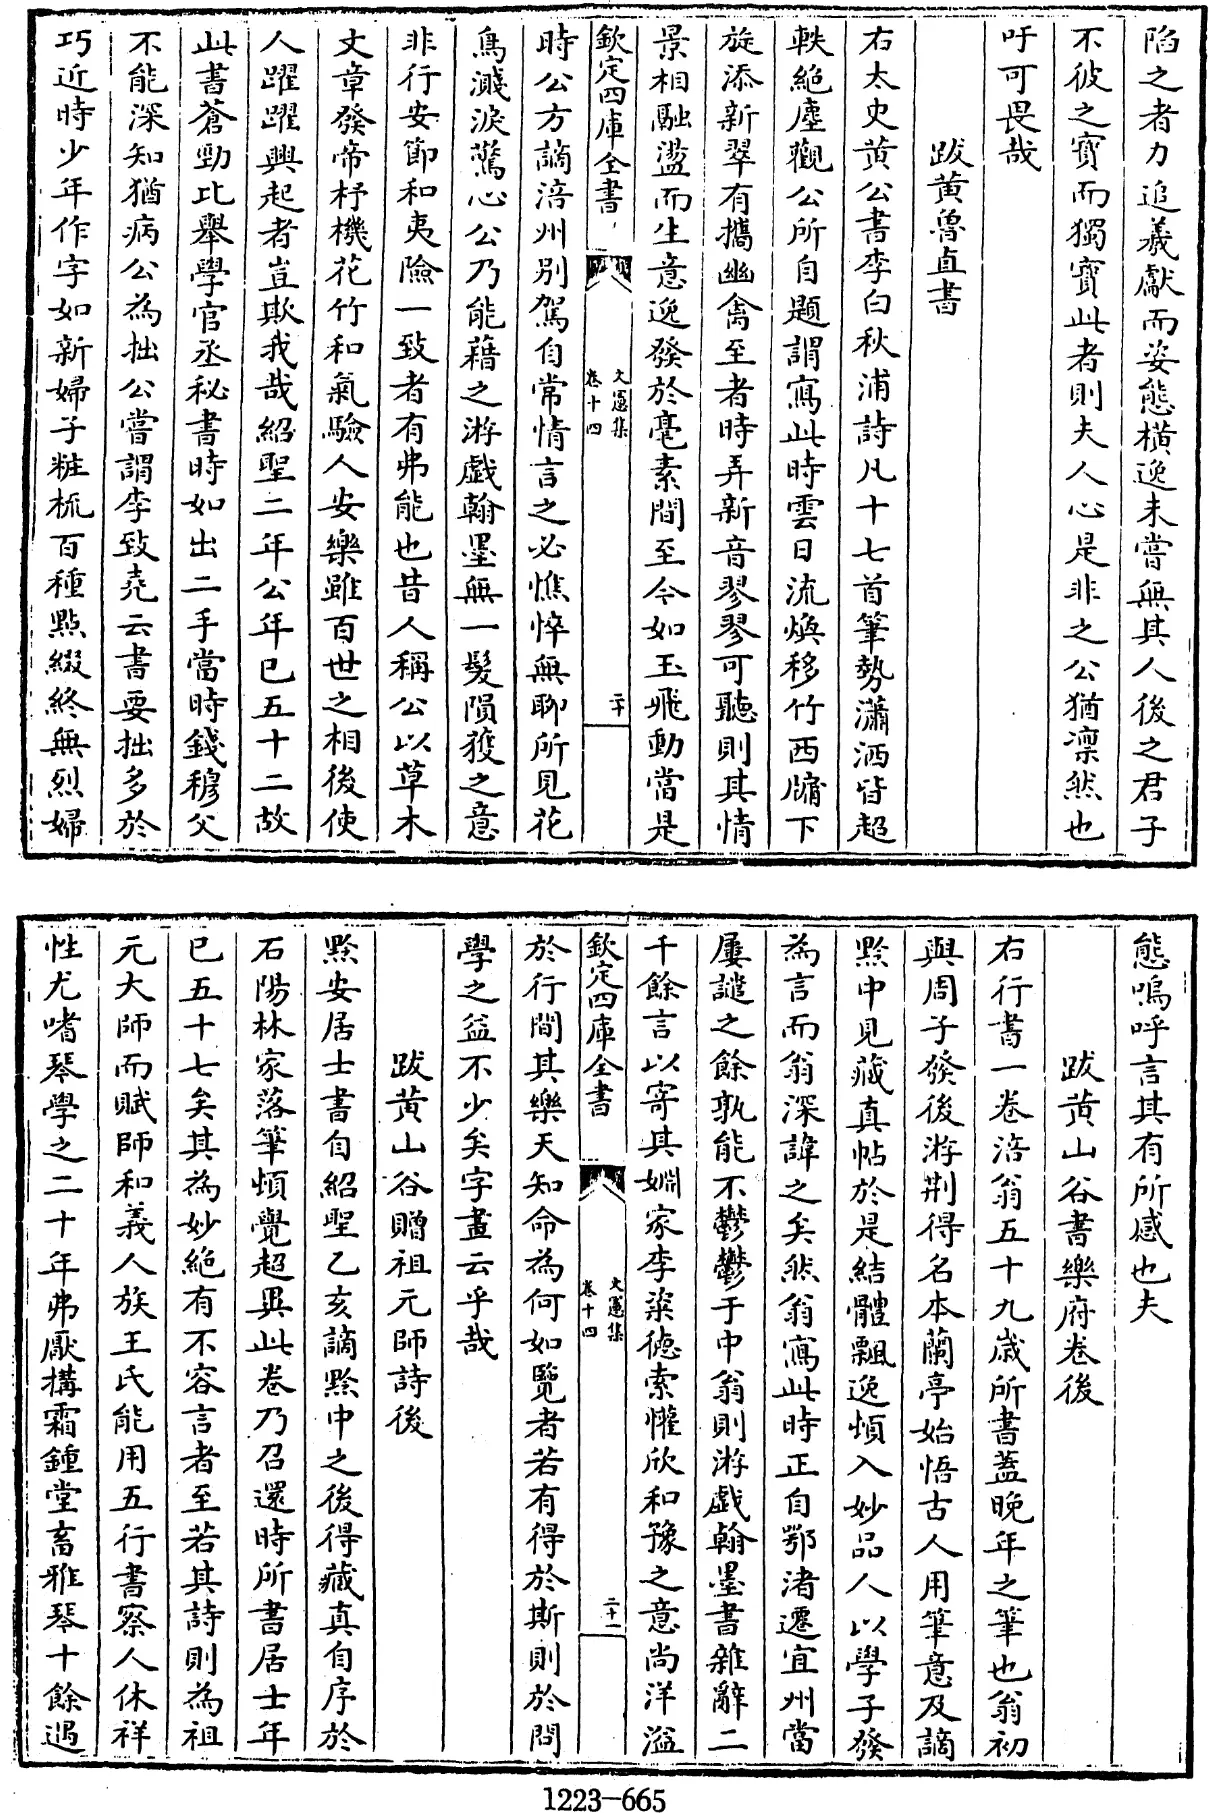 陷之者力追羲獻而姿態横逸未嘗無其人後之君子
不彼之寳而獨寳此者則夫人心是非之公猶凛然也
吁可畏哉
跋黄魯直書
右太史黄公書李白秋浦詩凡十七首筆勢瀟洒皆超
軼絶塵觀公所自題謂寫此時雲日流煥移竹西牖下
旋添新翠有攜幽禽至者時弄新音翏翏可聽則其情
景相融盪而生意逸發於毫素間至今如玉飛動當是
欽定四庫全書
文憲集
卷十四
二十
時公方謫涪州别駕自常情言之必憔悴無聊所見花
鳥濺淚驚心公乃能藉之游戯翰墨無一髮隕穫之意
非行安節和夷險一致者有弗能也昔人稱公以草木
文章發帝杼機花竹和氣驗人安樂雖百世之相後使
人躍躍興起者豈欺我哉紹聖二年公年已五十二故
此書蒼勁比舉學官丞秘書時如出二手當時錢穆父
不能深知猶病公為拙公嘗謂李致堯云書要拙多於
巧近時少年作字如新婦子粧梳百種㸃綴終無烈婦
態嗚呼言其有所感也夫
跋黄山谷書樂府卷後
右行書一卷涪翁五十九歲所書葢晚年之筆也翁初
與周子發後游荆得名本蘭亭始悟古人用筆意及謫
黔中見藏真帖於是結體飄逸頓入妙品人以學子發
為言而翁深諱之矣然翁寫此時正自鄂渚遷宜州當
屢譴之餘孰能不鬱鬱于中翁則游戯翰墨書雜辭二
千餘言以寄其姻家李粢德索懽欣和豫之意尚洋溢
欽定四庫全書
文憲集
卷十四
二十一
於行間其樂天知命為何如覽者若有得於斯則於問
學之益不少矣字畫云乎哉
跋黄山谷贈祖元師詩後
黔安居士書自紹聖乙亥謫黔中之後得藏真自序於
石陽林家落筆頓覺超異此卷乃召還時所書居士年
已五十七矣其為妙絶有不容言者至若其詩則為祖
元大師而賦師和義人族王氏能用五行書察人休祥
性尤嗜琴學之二十年弗厭搆霜鍾堂畜雅琴十餘遇
1223-665